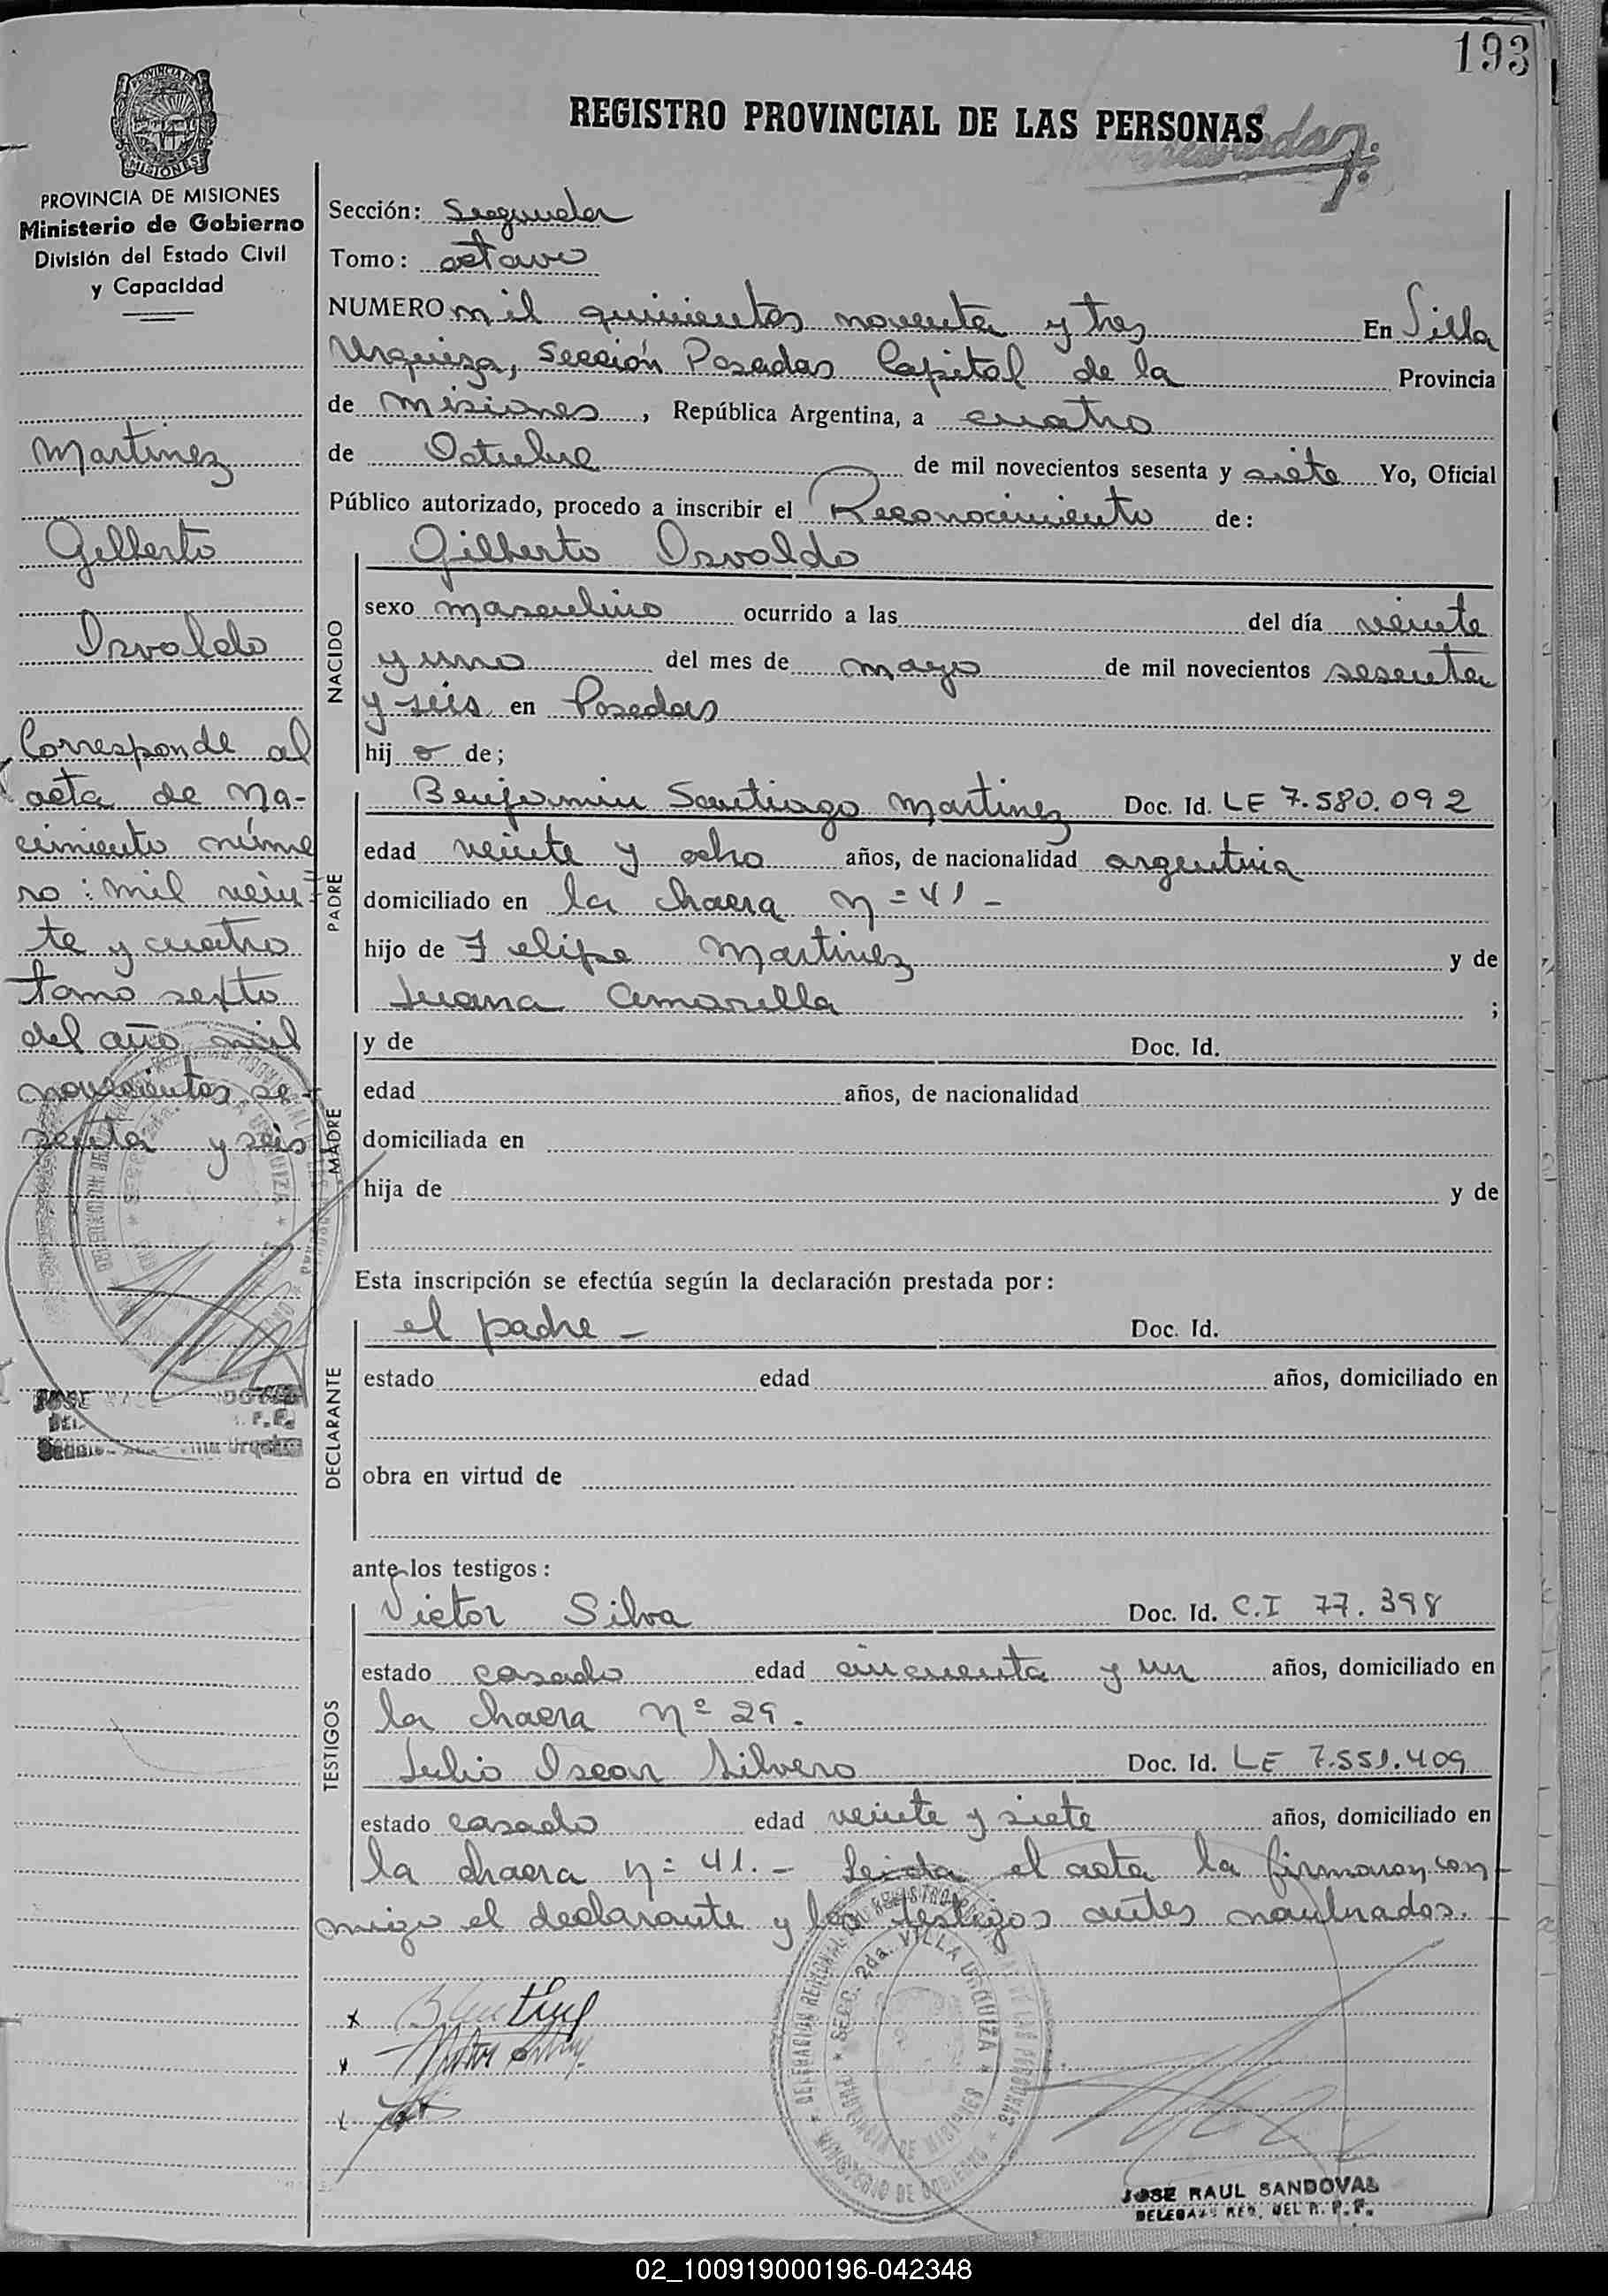 193
REGISTRO PROVINCIAL DE LAS PERSONAS
PROVINCIA DE MISIONES
MISIONES
PROVINCIA DE MISIONES
Ministerio de Gobierno
División del Estado Civil
y Capacidad
Martinez
Gilberto
Osvaldo
Corresponde al
acta de Na-
cimiento núme
ro: mil vein-
te y cuatro
tomo sexto
del año mil
novecientos se-
senta y seis
Sección: Segunda
Tomo: octavo
NUMERO mil quinientos noventa y tres En Villa
Urquiza, Sección Posadas Capital de la Provincia
de Misiones, República Argentina, a cuatro
de Octubre de mil novecientos sesenta y siete Yo, Oficial
Público autorizado, procedo a inscribir el Reconocimiento de:
NACIDO
Gilberto Osvaldo
sexo masculino ocurrido a las del día veinte
y uno del mes de mayo de mil novecientos sesenta
y seis en Posadas
hij o de;
PADRE
Benjamin Santiago Martinez Doc. Id. LE 7.580.092
edad veinte y ocho años, de nacionalidad argentina
domiciliado en la chacra n= 41 -
hijo de Felipe Martinez y de
Juana Amarilla ;
MADRE
y de Doc. Id.
edad años, de nacionalidad
domiciliada en
hija de y de
Esta inscripción se efectúa según la declaración prestada por:
DECLARANTE
el padre - Doc. Id.
estado edad años, domiciliado en
obra en virtud de
ante los testigos:
TESTIGOS
Victor Silva Doc. Id. C.I 77.398
estado casado edad cincuenta y un años, domiciliado en
la chacra nº 29.
Julio Oscar Silvero Doc. Id. LE 7.551.409
estado casado edad veinte y siete años, domiciliado en
la chacra n= 41.- Leida el acta la firmaron con-
migo el declarante y los testigos antes nombrados.
DELEGACION REGIONAL DEL REGISTRO PROVINCIAL DE LAS PERSONAS
SECC. 2da. VILLA URQUIZA
PROVINCIA DE MISIONES
MINISTERIO DE GOBIERNO
JOSE RAUL SANDOVAL
DELEGADO REG. DEL R. P. P.
02_100919000196-042348